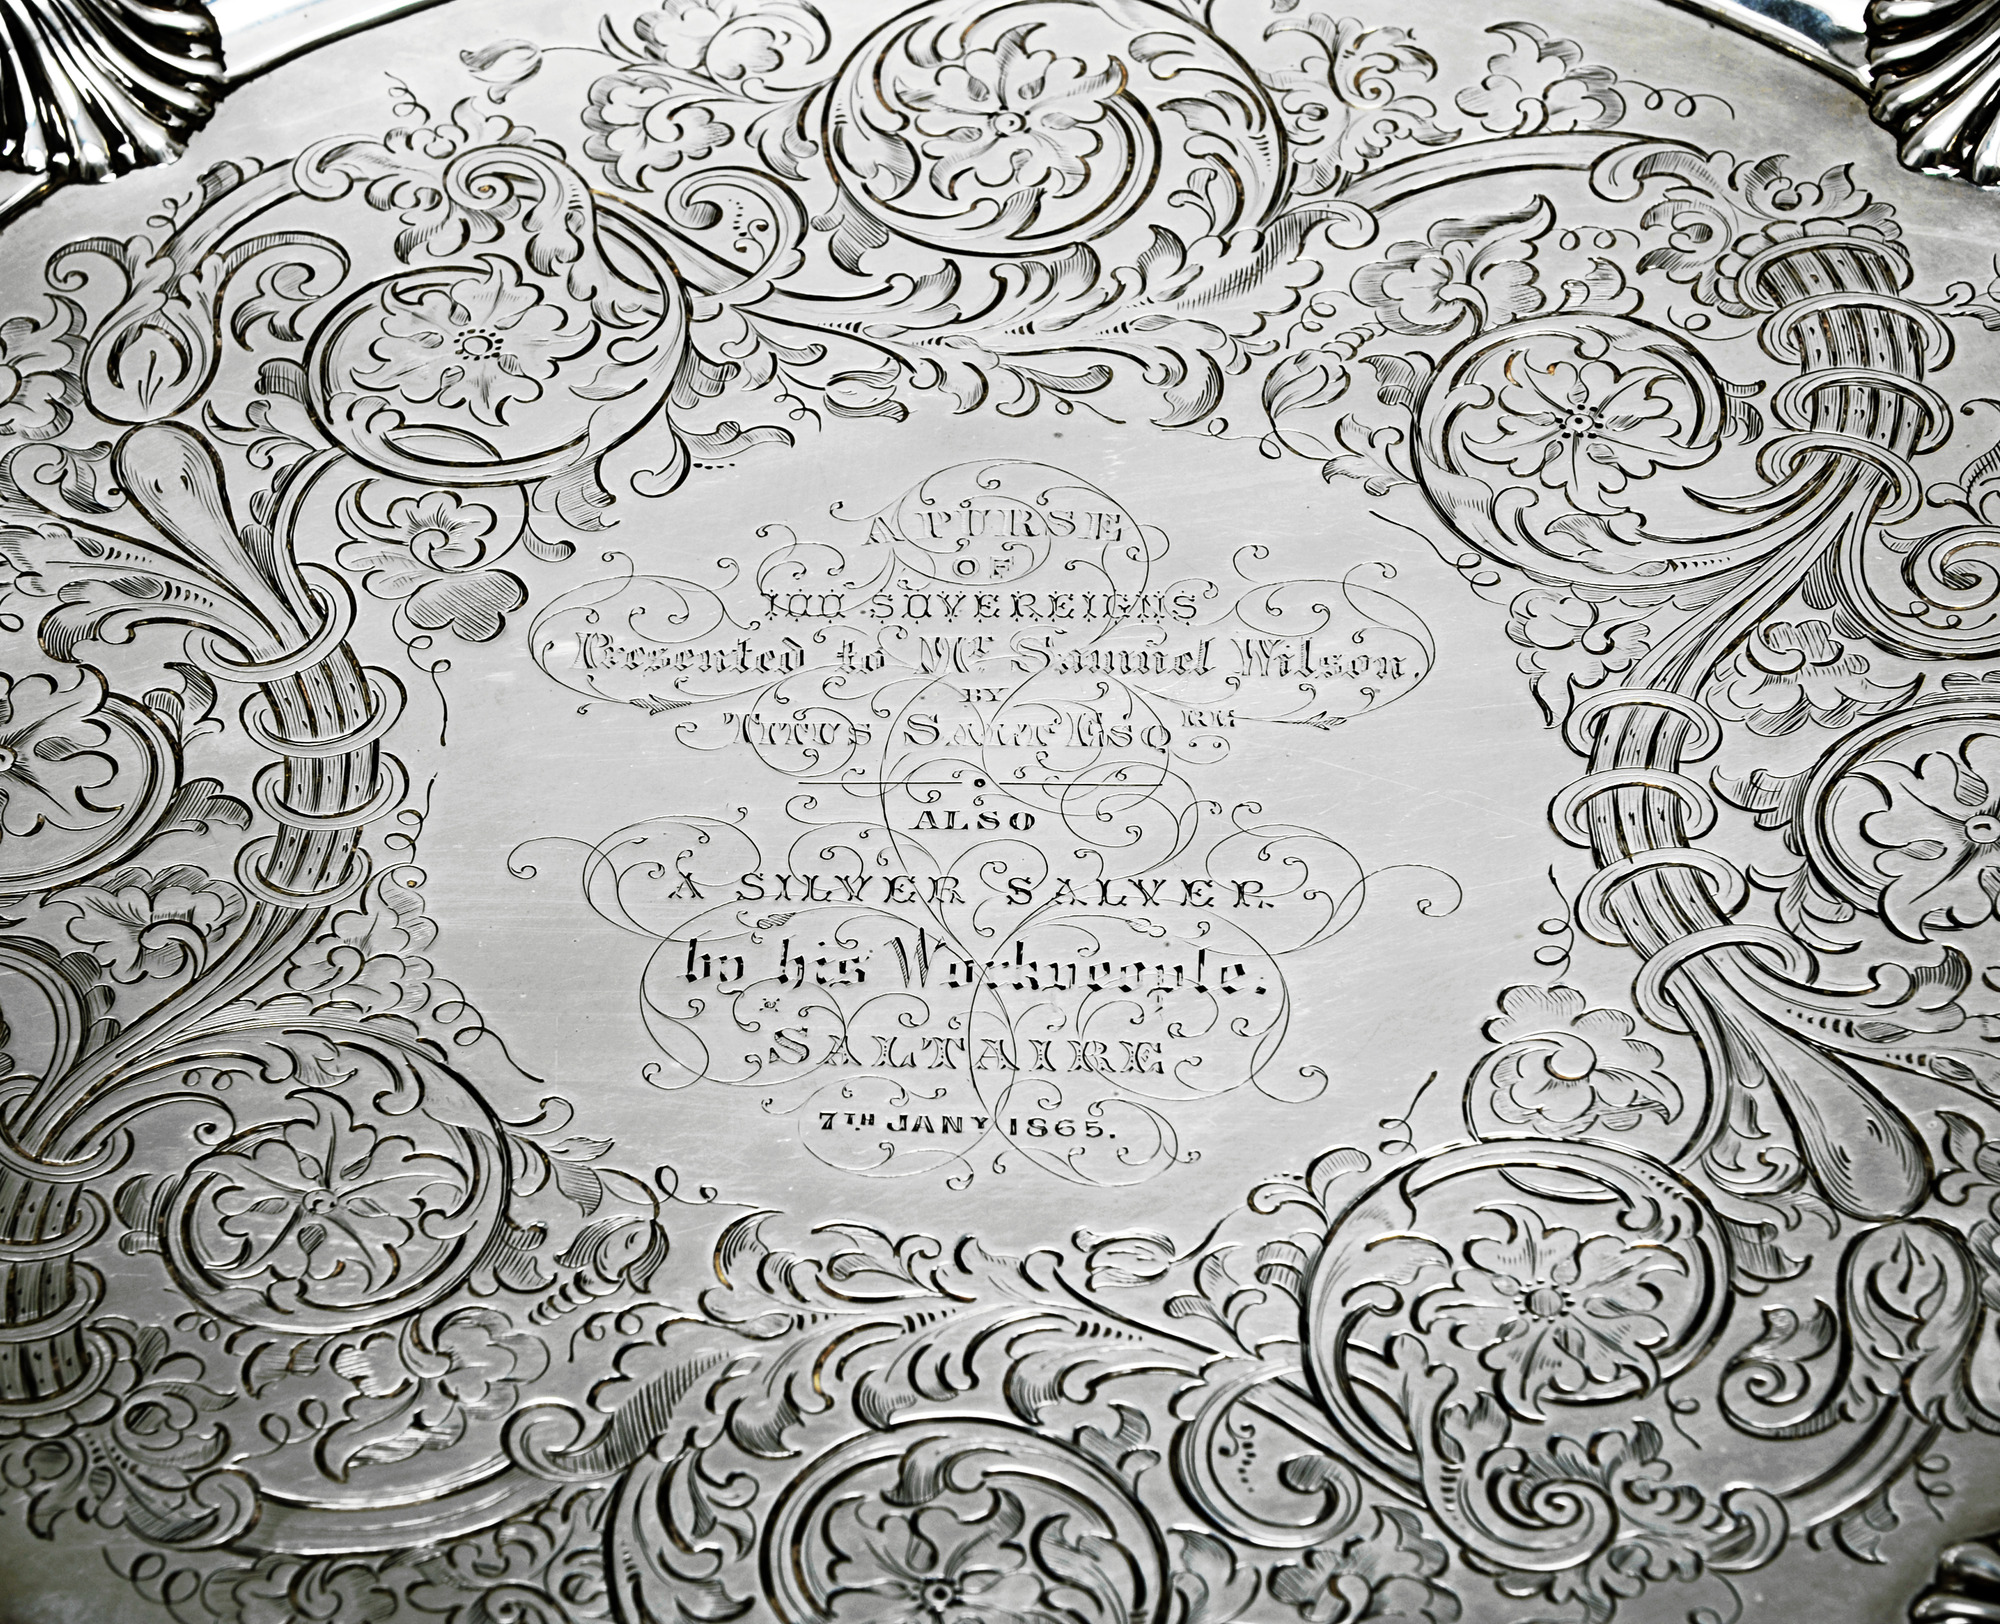 A PURSE
OF
100 SOVEREIGNS
Presented to Mr Samuel Wilson.
BY
TITUS SALT ESQRE
ALSO
A SILVER SALVER
by his Workpeople.
SALTAIRE
7TH JANY 1865.